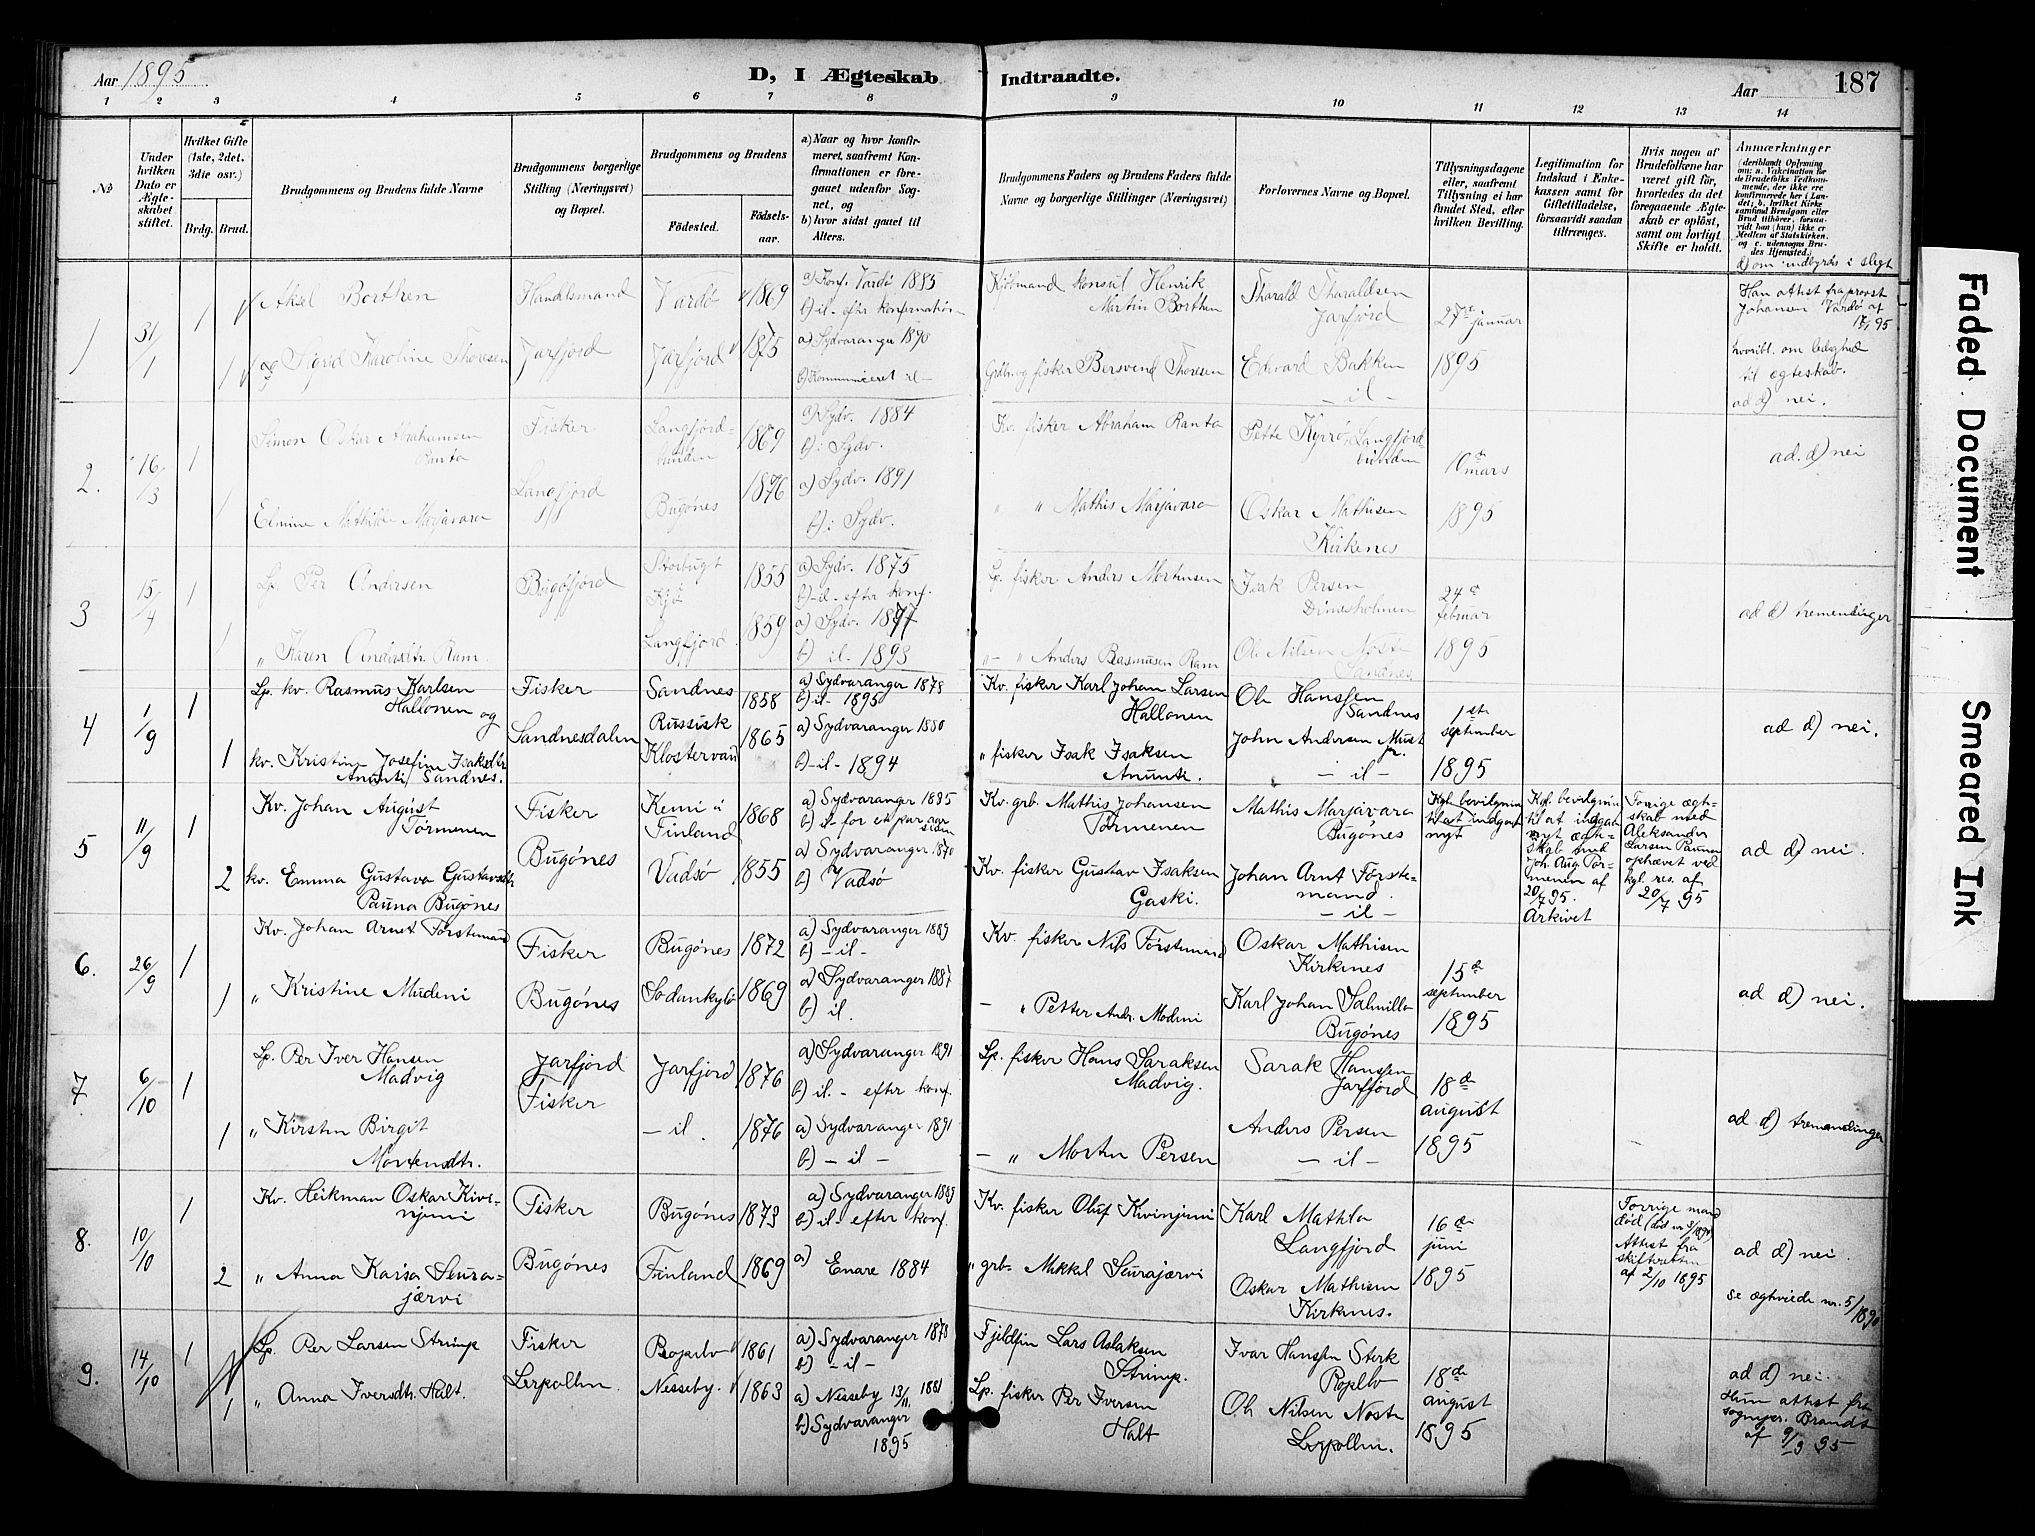 Aar 1895
D, I Ægteskab
Indtraadte.
Aar
187
1 2 3 4 5 6 7 8 9 10 11 12 13 14
No
Under hvilken Dato er Ægteskabet stiftet.
Hvilket Gifte (1ste, 2det, 3die osv.)
Brdg. Brud.
Brudgommens og Brudens fulde Navne
Brudgommens borgerlige Stilling (Næringsvei) og Bopæl.
Brudgommens og Brudens
Födested.
Födselsaar.
a) Naar og hvor konfirmeret, saafremt Konfirmationen er foregaaet udenfor Sognet, og
b) hvor sidst gaaet til Alters.
Brudgommens Faders og Brudens Faders fulde Navne og borgerlige Stillinger (Næringsvei)
Forlovernes Navne og Bopæl.
Tillysningsdagene eller, saafremt Tillysning ei har fundet Sted, efter hvilken Bevilling.
Legitimation for Indskud i Enkekassen samt for Giftetilladelse, forsaavidt saadan tiltrænges.
Hvis nogen af Brudefolkene har været gift för, hvorledes da det foregaaende Ægteskab er oplöst, samt om lovligt Skifte er holdt.
Anmærkninger
(deriblandt Oplysning om: a. Vakcination for de Brudefolks Vedkommende, der ikke ere konfirmerede her i Landet; b. hvilket Kirkesamfund Brudgom eller Brud tilhører, forsaavidt han (hun) ikke er Medlem af Statskirken, og c. udensogns Brudes Hjemsted.)
d) om indbyrdes i slegt
1
31/1
1
Aksel Borthen
Handlsmand
Vardø
1869
a) Konf. Vardø 1885
b) il. efter konfermation
Kjøbmand konsul Henrik
Martin Borthen
Tharald Tharaldsen
Jarfjord
27de januar
1895
Han attest fra provst
Johansen Vardø af
1
og Sigrid Karoline Thoresen
Jarfjord
Jarfjord
1875
a) Sydvaranger 1890
b) Kommuniceret il
fisker Bersvend Thoresen
Edevard Bakken
- il -
hvoribl. om ledighed
til ægteskab.
ad d) nei.
2.
16/3
1
Simon Oskar Abrahamsen
Ranta
Fisker
Langfjord-
bunden
1869
a) Sydv. 1884
b): Sydv.
Kv. fisker Abraham Ranta
Pette Kyrrø, Langfjord
bunden
10de mars
1895
ad. d) nei
1
Elmine Mathilde Marjavara
Langfjord
Bugønes
1876
a) Sydv. 1891
b): Sydv.
" " Mathis Marjavara
Oskar Mathisen
Kirkenes
3
15/4
1
Lp. Per Andersen
Bugøfjord
Storbugt
1855
a) Sydv. 1875
b) -il- efter konf.
Lp. fisker Anders Mortensen
Isak Persen
24de
februar
1895
ad d) tremendinger
1
" Karen Andersdtr. Ram.
Langfjord
1859
a) Sydv. 1877
b) il. 1893
" " Anders Rasmusen Ram
Ole Nilsen Noste
Sandnes
4
1/9
1
Lp. kv. Rasmus Karlsen
Hallonen og
Fisker
Sandnes
1858
a) Sydvaranger 1878
b) il- 1895
Kv. fisker Karl Johan Larsen
Hallonen
Ole Hanssen
Sandnes
1ste
september
1895
ad d) nei.
1
kv. Kristine Josefine Isaksdtr
Anunti Sandnes.
Sandnesdalen
Russisk
Klostervand
1865
a) Sydvaranger 1880
b) -il- 1894
" fisker Isak Isaksen
Anunti.
John Andersen Must
jr.
- il -
5
11/9
1
Kv. Johan August
Törmenen
Fisker
Kemi i
Finland
1868
a) Sydvaranger 1885
b) il- for et par aar
siden
Kv. grb. Mathis Johansen
Törmenen
Mathis Marjavara
Bugønes
Kgl. bevilgning
til at indgaa
nyt
Kgl. bevilgning
til at indgaa
nyt ægte-
skab med
Joh. Aug. Tör-
menen af
20/7 95.
Arkivet
Forrige ægte-
skab med
Aleksander
Larsen Pauna
ophævet ved
kgl. res. af
20/7 95
ad d) nei.
2
kv. Emma Gustava Gustavsdtr
Pauna Bugønes
Bugønes
Vadsø
1855
a) Sydvaranger 1870
b) Vadsø
Kv. fisker Gustav Isaksen
Gaski.
Johan Arnt Förste-
mand.
- il -
6.
26/9
1
Kv. Johan Arnt Förstemand
Fisker
Bugønes
1872
a) Sydvaranger 1889
b) - il -
Kv. fisker Nils Förstemand
Oskar Mathisen
Kirkenes
15de
september
1895
ad d) nei.
1
" Kristine Mudeni
Bugønes
Sodankylä
1869
a) Sydvaranger 1887
b) il.
- " Petter Andr. Modeni
Karl Johan Salmilla
Bugønes
7.
6/10
1
Lp. Per Iver Hansen
Madvig
Jarfjord
Fisker
Jarfjord
1876
a) Sydvaranger 1891
b) il. - efter konf.
Lp. fisker Hans Saraksen
Madvig.
Sarak Hanssen
Jarfjord
18de
august
1895
ad d) tremendinger
1
" Kirsten Birgit
Mortensdtr.
- il.
1876
a) Sydvaranger 1891
b) - il -
- " Morten Persen
Anders Persen
- il -
8.
10/10
1
Kv. Heikman Oskar Kivi-
njemi
Fisker
Bugønes
1873
a) Sydvaranger 1889
b) il- efter konf.
Kv. fisker Oluf Kivinjemi
Karl Mathla
Langfjord
16de
juni
1895
Forrige mand
död
Attest fra
skifteretten
af 2/10 1895
ad d) nei.
2
" Anna Kaisa Seura-
järvi
Bugønes
Finland
1869
a) Enare 1884
" grb. Mikkel Seurajærvi
Oskar Mathisen
Kirkenes.
se ægtviede nr. 5/1890
9.
14/10
1
Lp. Per Larsen Strimp
Fisker
Bopelv
1861
a) Sydvaranger 1878
b) - il -
Fjeldfin Lars Aslaksen
Strimp.
Ivar Hanssen Sterk
Ropelv
18de
august
1895
ad d) nei.
1
" Anna Iversdtr. Halt.
Lerpollen.
Nesseby.
1863
a) Nesseby 13/11 1881
b) Sydvaranger
1895
Lp. fisker Per Iversen
Halt
Ole Nilsen Noste
Lerpollen.
Hun attest fra
sognepr. Brandt
af 9/9 95
Faded Document
Smeared Ink